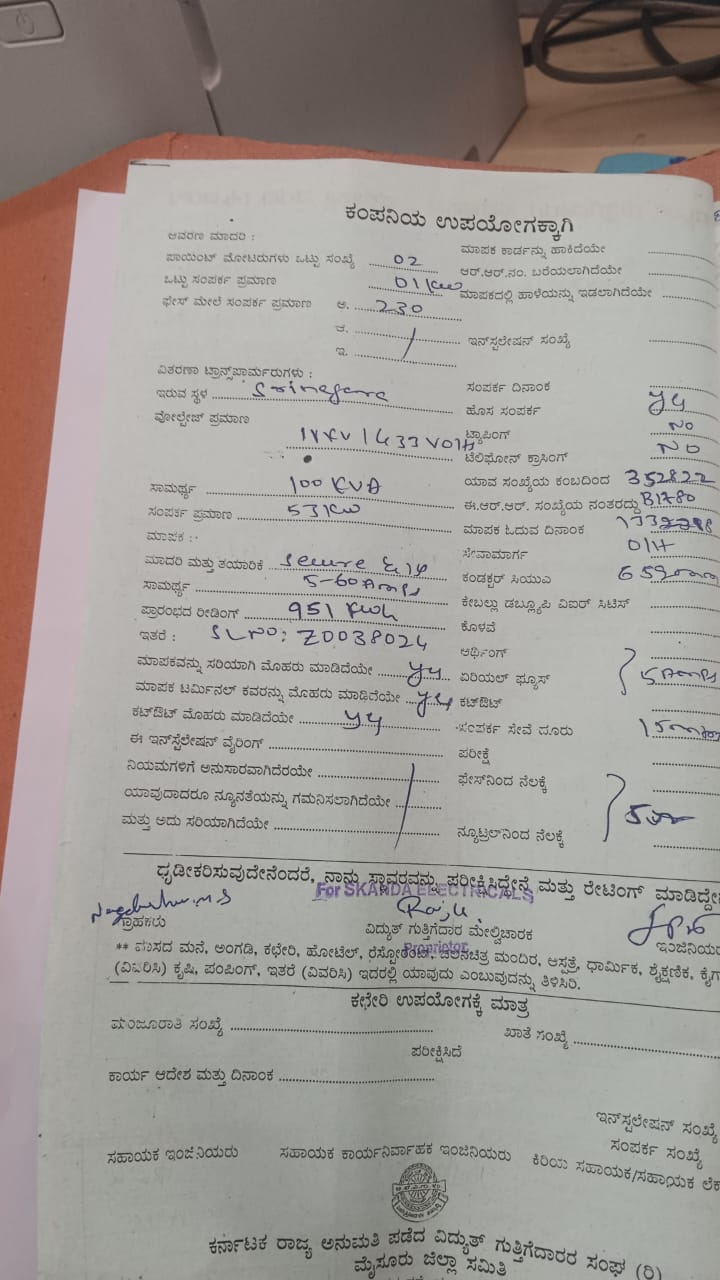 ಕಂಪನಿಯ ಉಪಯೋಗಕ್ಕಾಗಿ
ಆವರಣ ಮಾದರಿ :
ಮಾಪಕ ಕಾರ್ಡನ್ನು ಹಾಕಿದೆಯೇ
ಪಾಯಿಂಟ್ ಮೋಟರುಗಳು ಒಟ್ಟು ಸಂಖ್ಯೆ 02
ಆರ್.ಆರ್.ನಂ. ಬರೆಯಲಾಗಿದೆಯೇ
ಒಟ್ಟು ಸಂಪರ್ಕ ಪ್ರಮಾಣ 01 KW
ಮಾಪಕದಲ್ಲಿ ಹಾಳೆಯನ್ನು ಇಡಲಾಗಿದೆಯೇ
ಫೇಸ್ ಮೇಲೆ ಸಂಪರ್ಕ ಪ್ರಮಾಣ ಅ. 230
ಆ.
ಇನ್‌ಸ್ಟಲೇಷನ್ ಸಂಖ್ಯೆ
ಇ.
ವಿತರಣಾ ಟ್ರಾನ್ಸ್‌ಫಾರ್ಮರುಗಳು :
ಸಂಪರ್ಕ ದಿನಾಂಕ
ಇರುವ ಸ್ಥಳ Srinagara
ಹೊಸ ಸಂಪರ್ಕ
ವೋಲ್ಟೇಜ್ ಪ್ರಮಾಣ
ಟ್ಯಾಪಿಂಗ್ NO
ಟೆಲಿಫೋನ್ ಕ್ರಾಸಿಂಗ್ NO
ಸಾಮರ್ಥ್ಯ 100 KVA
ಯಾವ ಸಂಖ್ಯೆಯ ಕಂಬದಿಂದ 352822
ಸಂಪರ್ಕ ಪ್ರಮಾಣ 53 KW
ಈ.ಆರ್.ಆರ್. ಸಂಖ್ಯೆಯ ನಂತರದ್ದು B1780
ಮಾಪಕ :
ಮಾಪಕ ಓದುವ ದಿನಾಂಕ
ಸೇವಾಮಾರ್ಗ O/H
ಮಾದರಿ ಮತ್ತು ತಯಾರಿಕೆ Secure
ಕಂಡಕ್ಟರ್ ಸಿಯುಎ
ಸಾಮರ್ಥ್ಯ 5-60 Amps
ಕೇಬಲ್ಲು ಡಬ್ಲ್ಯೂಪಿ ವಿಐರ್ ಸಿಟಿಸ್
ಪ್ರಾರಂಭದ ರೀಡಿಂಗ್ 951 Kwh
ಕೊಳವೆ
ಇತರೆ : SL NO: Z0038024
ಅರ್ಥಿಂಗ್
ಮಾಪಕವನ್ನು ಸರಿಯಾಗಿ ಮೊಹರು ಮಾಡಿದೆಯೇ
ಏರಿಯಲ್ ಫ್ಯೂಸ್ 15 Amps
ಮಾಪಕ ಟರ್ಮಿನಲ್ ಕವರನ್ನು ಮೊಹರು ಮಾಡಿದೆಯೇ
ಕಟ್‌ಔಟ್
ಕಟ್‌ಔಟ್ ಮೊಹರು ಮಾಡಿದೆಯೇ
ಸಂಪರ್ಕ ಸೇವೆ ದೂರು
ಈ ಇನ್‌ಸ್ಟಲೇಷನ್ ವೈರಿಂಗ್
ಪರೀಕ್ಷೆ
ನಿಯಮಗಳಿಗೆ ಅನುಸಾರವಾಗಿದೆರಯೇ
ಫೇಸ್‌ನಿಂದ ನೆಲಕ್ಕೆ
ಯಾವುದಾದರೂ ನ್ಯೂನತೆಯನ್ನು ಗಮನಿಸಲಾಗಿದೆಯೇ
ಮತ್ತು ಅದು ಸರಿಯಾಗಿದೆಯೇ
ನ್ಯೂಟ್ರಲ್‌ನಿಂದ ನೆಲಕ್ಕೆ
ಧೃಡೀಕರಿಸುವುದೇನೆಂದರೆ, ನಾನು ಸ್ಥಾವರವನ್ನು ಪರೀಕ್ಷಿಸಿದ್ದೇನೆ ಮತ್ತು ರೇಟಿಂಗ್ ಮಾಡಿದ್ದೇನೆ
For SKANDA ELECTRICALS,
Raju.
ಗ್ರಾಹಕರು
ವಿದ್ಯುತ್ ಗುತ್ತಿಗೆದಾರ ಮೇಲ್ವಿಚಾರಕ
ಇಂಜಿನಿಯರ
Proprietor
** ವಾಸದ ಮನೆ, ಅಂಗಡಿ, ಕಛೇರಿ, ಹೋಟೆಲ್, ರೆಸ್ಟೋರೆಂಟ್, ಚಲನಚಿತ್ರ ಮಂದಿರ, ಆಸ್ಪತ್ರೆ, ಧಾರ್ಮಿಕ, ಶೈಕ್ಷಣಿಕ, ಕೈಗಾ
(ವಿವರಿಸಿ) ಕೃಷಿ, ಪಂಪಿಂಗ್, ಇತರೆ (ವಿವರಿಸಿ) ಇದರಲ್ಲಿ ಯಾವುದು ಎಂಬುವುದನ್ನು ತಿಳಿಸಿರಿ.
ಕಛೇರಿ ಉಪಯೋಗಕ್ಕೆ ಮಾತ್ರ
ಮಂಜೂರಾತಿ ಸಂಖ್ಯೆ
ಖಾತೆ ಸಂಖ್ಯೆ
ಪರೀಕ್ಷಿಸಿದೆ
ಕಾರ್ಯ ಆದೇಶ ಮತ್ತು ದಿನಾಂಕ
ಇನ್‌ಸ್ಟಲೇಷನ್ ಸಂಖ್ಯೆ
ಸಂಪರ್ಕ ಸಂಖ್ಯೆ
ಸಹಾಯಕ ಇಂಜಿನಿಯರು
ಸಹಾಯಕ ಕಾರ್ಯನಿರ್ವಾಹಕ ಇಂಜಿನಿಯರು
ಕಿರಿಯ ಸಹಾಯಕ/ಸಹಾಯಕ ಲೆಕ
ಕರ್ನಾಟಕ ರಾಜ್ಯ ಅನುಮತಿ ಪಡೆದ ವಿದ್ಯುತ್ ಗುತ್ತಿಗೆದಾರರ ಸಂಘ (ರಿ)
ಮೈಸೂರು ಜಿಲ್ಲಾ ಸಮಿತಿ